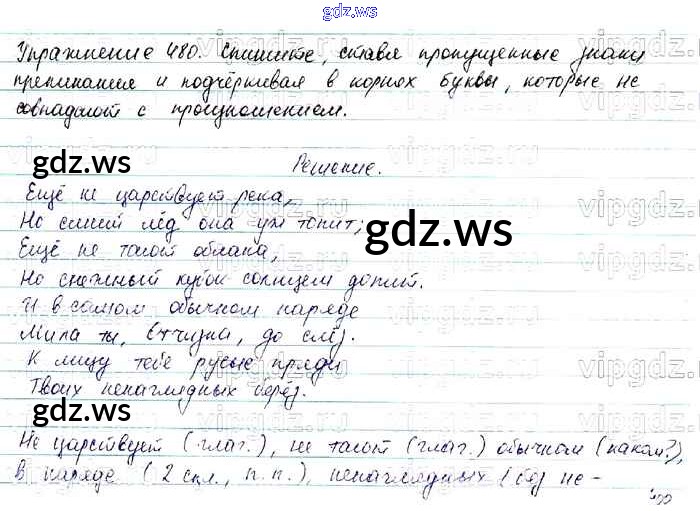 gdz.ws
Упражнение 480. Спишите, ставя пропущенные знаки
препинания и подчёркивая в корнях буквы, которые не
совпадают с произношением.
gdz.ws
Решение.
Ещё не царствует река,
Но синий лёд она уж топит;
gdz.ws
Ещё не тают облака,
Но снежный кубок солнцем допит.
И в самом обычном наряде
Мила ты, Отчизна, до слёз.
К лицу тебе русые пряди
Твоих ненаглядных берёз.
gdz.ws
Не царствует (глаг.), не тают (глаг.) обычном (каком?),
в наряде (2 скл., п.п.), ненаглядных (без не-